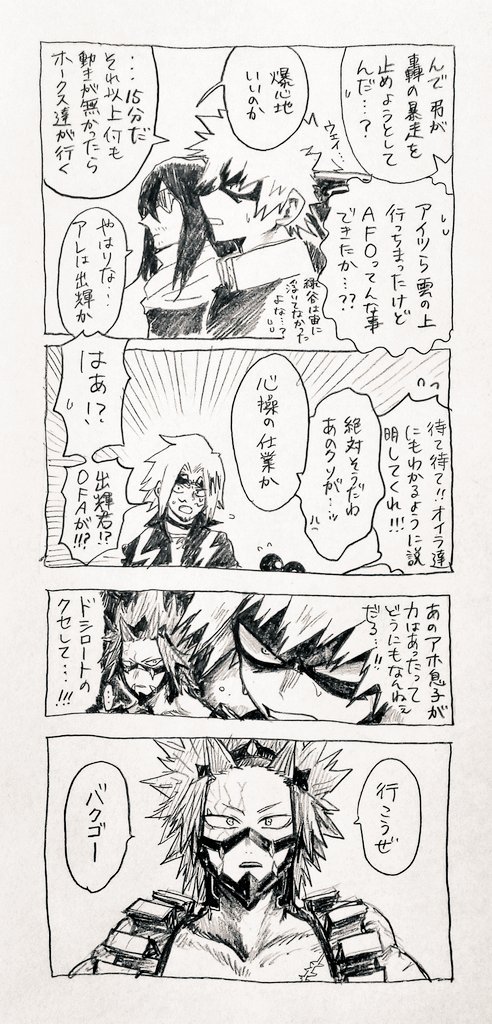 んで 弔が
轟の暴走を
止めようとして
んだ…?
爆心地
いいのか
ウティ…
…15分だ
それ以上何も
動きが無かったら
ホークス達が行く
アイツら雲の上
行っちまったけど
AFOってんな事
できたか…??
緑谷は宙に
浮いてなかった
よな…?
やはりな…
アレは出輝か
待て待て!!オイラ達
にもわかるように説
明してくれ!!!
絶対そうだわ
あのクソが…ッ
心操の仕業か
はあ!?
出輝君!?
OFAが!!?
あのアホ息子が
力はあったって
どうにもなんねぇ
だろ…!!
ドシロートの
クセして…!!!
行こうぜ
バクゴー